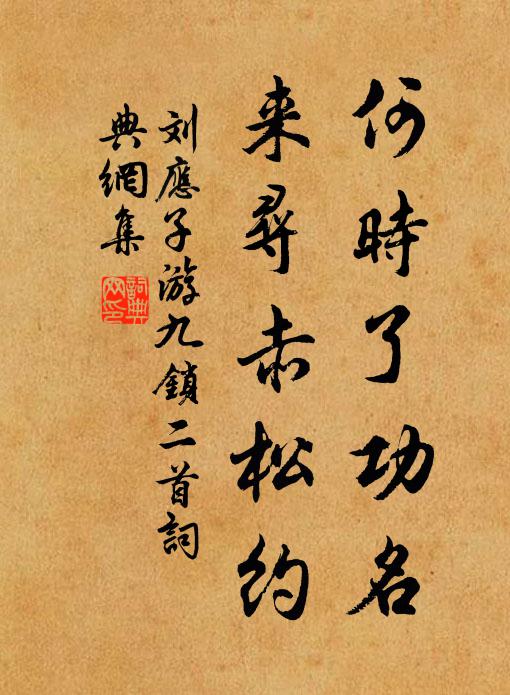 何時了功名
来尋赤松约
刘應子游九鎖二首詞
典網集
詞典
网印